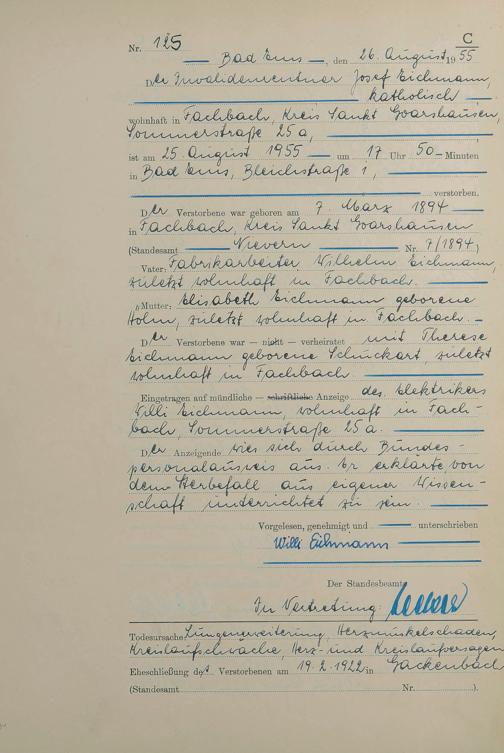 C
Nr. 125
Bad Ems, den 26. August 1955
Der Invalidenrentner Josef Eichmann,
katholisch
wohnhaft in Fachbach, Kreis Sankt Goarshausen,
Sommerstraße 25a,
ist am 25. August 1955 um 17 Uhr 50 Minuten
in Bad Ems, Bleichstraße 1,
verstorben.
Der Verstorbene war geboren am 7. März 1894
in Fachbach, Kreis Sankt Goarshausen
(Standesamt Nievern Nr. 7/1894)
Vater: Fabrikarbeiter Wilhelm Eichmann,
zuletzt wohnhaft in Fachbach.
Mutter: Elisabeth Eichmann geborene
Holm, zuletzt wohnhaft in Fachbach.
Der Verstorbene war — nicht — verheiratet mit Therese
Eichmann geborene Schuckart, zuletzt
wohnhaft in Fachbach
Eingetragen auf mündliche — schriftliche Anzeige des Elektrikers
Willi Eichmann, wohnhaft in Fach-
bach, Sommerstraße 25a.
Der Anzeigende wies sich durch Bundes-
personalausweis aus. Er erklärte von
dem Sterbefall aus eigener Wissen-
schaft unterrichtet zu sein.
Vorgelesen, genehmigt und unterschrieben
Willi Eichmann
Der Standesbeamte
In Vertretung:
Todesursache: Lungenerweiterung, Herzmuskelschaden,
Kreislaufschwäche, Herz- und Kreislaufversagen
Eheschließung des Verstorbenen am 19.2.1922 in Gackenbach
(Standesamt Nr. ).